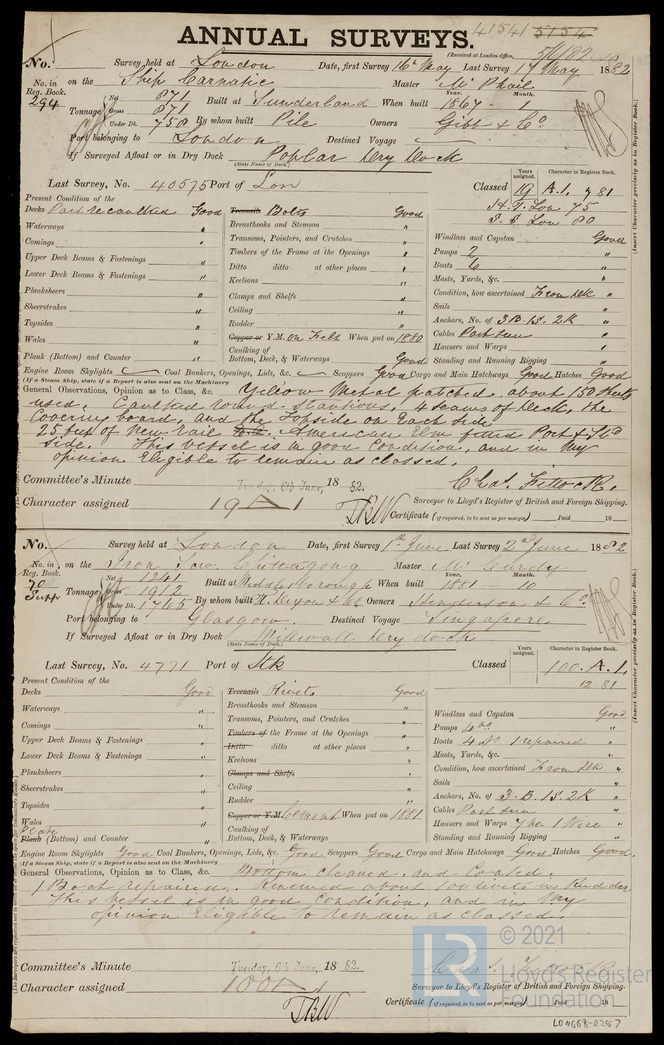 41541 5154
ANNUAL SURVEYS.
(Received at London Office,
No. Survey held at London Date, first Survey 16th May Last Survey 17 May 1882
No. in Reg. Book. on the Ship Carnatic Master McPhail
294 Tonnage Net 871 Gross 871 Under Dk. 750 Built at Sunderland When built Year. 1867 Month. 1
By whom built Pile Owners Gibb & Co.
Port belonging to London Destined Voyage
If Surveyed Afloat or in Dry Dock Poplar Dry Dock
(State Name of Dock.)
Last Survey, No. 40575 Port of Lon Classed Years assigned. 19 Character in Register Book. A.1. 7 81
H.T. Lon 75
S.S Lon 80
(Insert Character precisely as in Register Book.)
Present Condition of the
Decks Part recaulked Good
Waterways "
Comings "
Upper Deck Beams & Fastenings "
Lower Deck Beams & Fastenings "
Planksheers "
Sheerstrakes "
Topsides "
Wales "
Plank (Bottom) and Counter "
Treenails Bolts Good
Breasthooks and Stemson "
Transoms, Pointers, and Crutches "
Timbers of the Frame at the Openings "
Ditto ditto at other places "
Keelsons "
Clamps and Shelfs "
Ceiling "
Rudder "
Copper or Y.M. on Felt When put on 1880
Caulking of
Bottom, Deck, & Waterways Good
Windlass and Capstan Good
Pumps 2 "
Boats 6 "
Masts, Yards, &c. "
Condition, how ascertained From Dk "
Sails "
Anchors, No. of 3 B. 1 S. 2 K "
Cables Part seen "
Hawsers and Warps "
Standing and Running Rigging "
Engine Room Skylights Coal Bunkers, Openings, Lids, &c. Scuppers Good Cargo and Main Hatchways Good Hatches Good
(If a Steam Ship, state if a Report is also sent on the Machinery
General Observations, Opinion as to Class, &c. Yellow Metal patched. about 150 sheets
used. Caulked round Stantions, 4 seams of Deck, the
Covering board, and the Topside on Each side.
25 feet of New rail American Elm fitted Port & Stbd
side. This vessel is in good Condition, and in My
opinion Eligible to remain as classed.
Committee's Minute Tuesday, 6th June, 1882.
Chas. Fittock.
Character assigned 19 A 1 Surveyor to Lloyd's Register of British and Foreign Shipping.
Certificate (if required, to be sent as per margin) Paid 18
No. Survey held at London Date, first Survey 1st June Last Survey 2nd June 1882
No. in Reg. Book. on the Iron Scw. Chittagong Master McCurdy
70 Supp Tonnage Net 1241 Gross 1912 Under Dk. 1765 Built at Middlesborough When built 1881 10
By whom built R. Dixon & Co Owners Henderson & Co.
Port belonging to Glasgow Destined Voyage Singapore
If Surveyed Afloat or in Dry Dock Millwall Dry dock
(State Name of Dock.)
Last Survey, No. 4771 Port of Stk Classed Years assigned. Character in Register Book. 100. A. 1.
12.81
(Insert Character precisely as in Register Book.)
Present Condition of the
Decks Good
Waterways "
Comings "
Upper Deck Beams & Fastenings "
Lower Deck Beams & Fastenings "
Planksheers "
Sheerstrakes "
Topsides "
Wales "
Plate
Plank (Bottom) and Counter "
Treenails Rivets Good
Breasthooks and Stemson "
Transoms, Pointers, and Crutches "
Timbers of the Frame at the Openings "
Ditto ditto at other places "
Keelsons "
Clamps and Shelfs
Ceiling "
Rudder "
Copper or Y.M. Cement When put on 1881
Caulking of
Bottom, Deck, & Waterways "
Windlass and Capstan Good
Pumps "
Boats 4 1 repaired "
Masts, Yards, &c. "
Condition, how ascertained From Dk "
Sails "
Anchors, No. of 3. B. 1 S. 2 K "
Cables Part seen "
Hawsers and Warps 1 Wire "
Standing and Running Rigging "
Engine Room Skylights Good Coal Bunkers, Openings, Lids, &c. Good Scuppers Good Cargo and Main Hatchways Good Hatches Good.
(If a Steam Ship, state if a Report is also sent on the Machinery
General Observations, Opinion as to Class, &c. Bottom cleaned, and Coated.
1 Boat repaired. Renewed about 100 rivets in Rudder
This vessel is in good Condition, and in My
opinion Eligible to remain as classed.
Committee's Minute Tuesday, 6th June, 1882.
Character assigned 100 A 1 Surveyor to Lloyd's Register of British and Foreign Shipping.
Certificate (if required, to be sent as per margin) Paid 18
© 2021
LR Lloyd's Register
Foundation
LD4668-0257